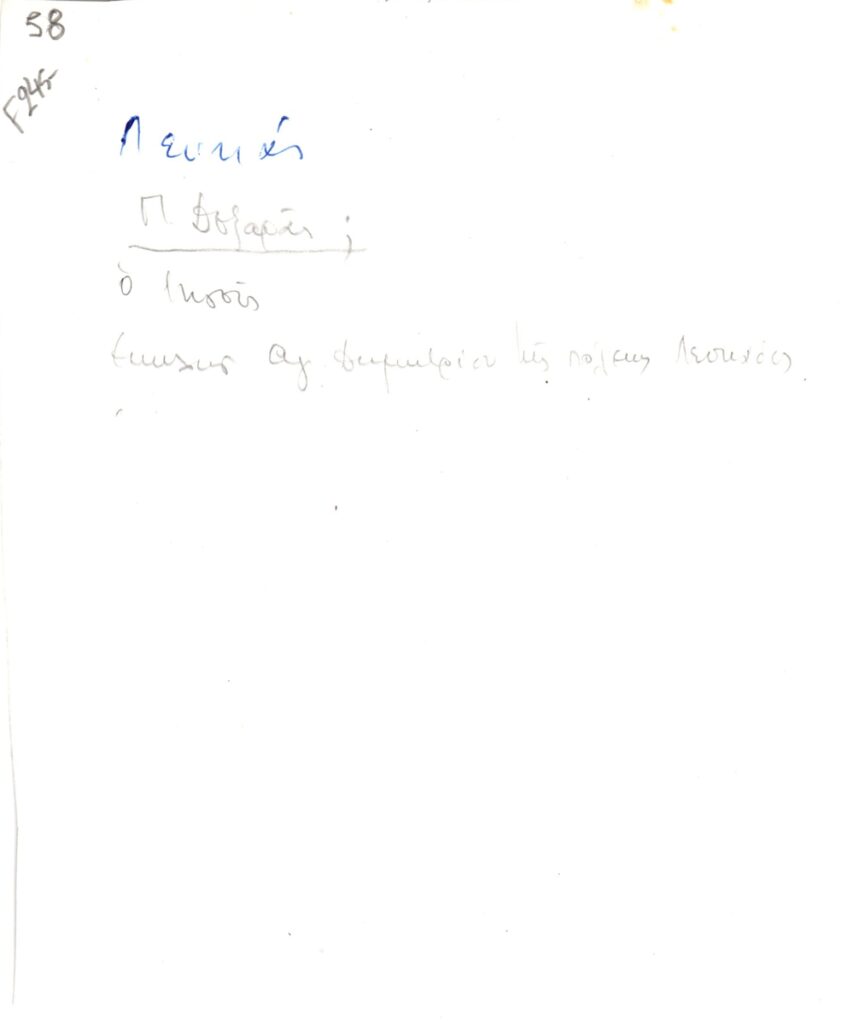 58
F245
Λευκάς
Π Δοξαράς ;
ὁ Ἰησοῦς
Αγ. Δημητρίου τῆς πόλεως Λευκάδος